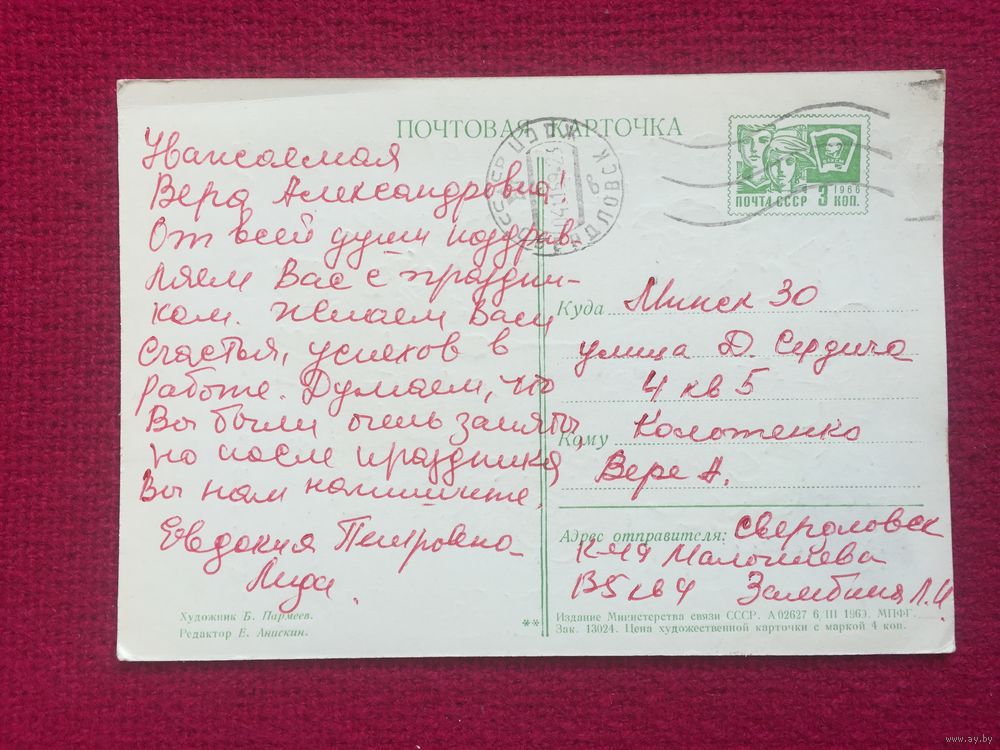 ПОЧТОВАЯ КАРТОЧКА
Уважаемая
Вера Александровна!
От всей души поздрав-
ляем Вас с праздни-
ком. Желаем Вам
счастья, успехов в
работе. Думаем, что
Вы были очень заняты,
но после праздника
Вы нам напишите.
Евдокия Петровна
Лида.
Художник Б. Пармеев.
Редактор Е. Анискин.
СВЕРДЛОВСК
1966
ПОЧТА СССР 3 КОП.
Куда Минск 30
улица Д. Сердича
4 кв 5
Кому Колотенко
Вере А.
Адрес отправителя: Свердловск
К-49 Малышева
кв 4 Л.И
**
Издание Министерства связи СССР. А 02627 6/III 1969. МПФГ.
Зак. 13024. Цена художественной карточки с маркой 4 коп.
www.ay.by